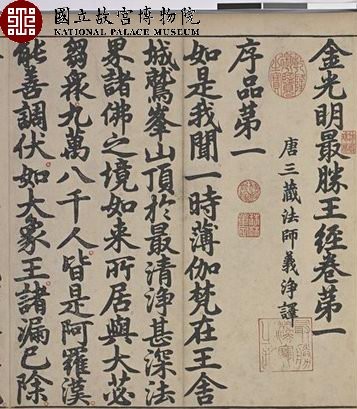 國立故宮博物院
NATIONAL PALACE MUSEUM
金光明最勝王經卷第一
唐三藏法師義淨譯
序品第一
如是我聞一時薄伽梵在王舍
城鷲峯山頂於最清淨甚深法
界諸佛之境如來所居與大苾
芻衆九萬八千人皆是阿羅漢
能善調伏如大象王諸漏已除